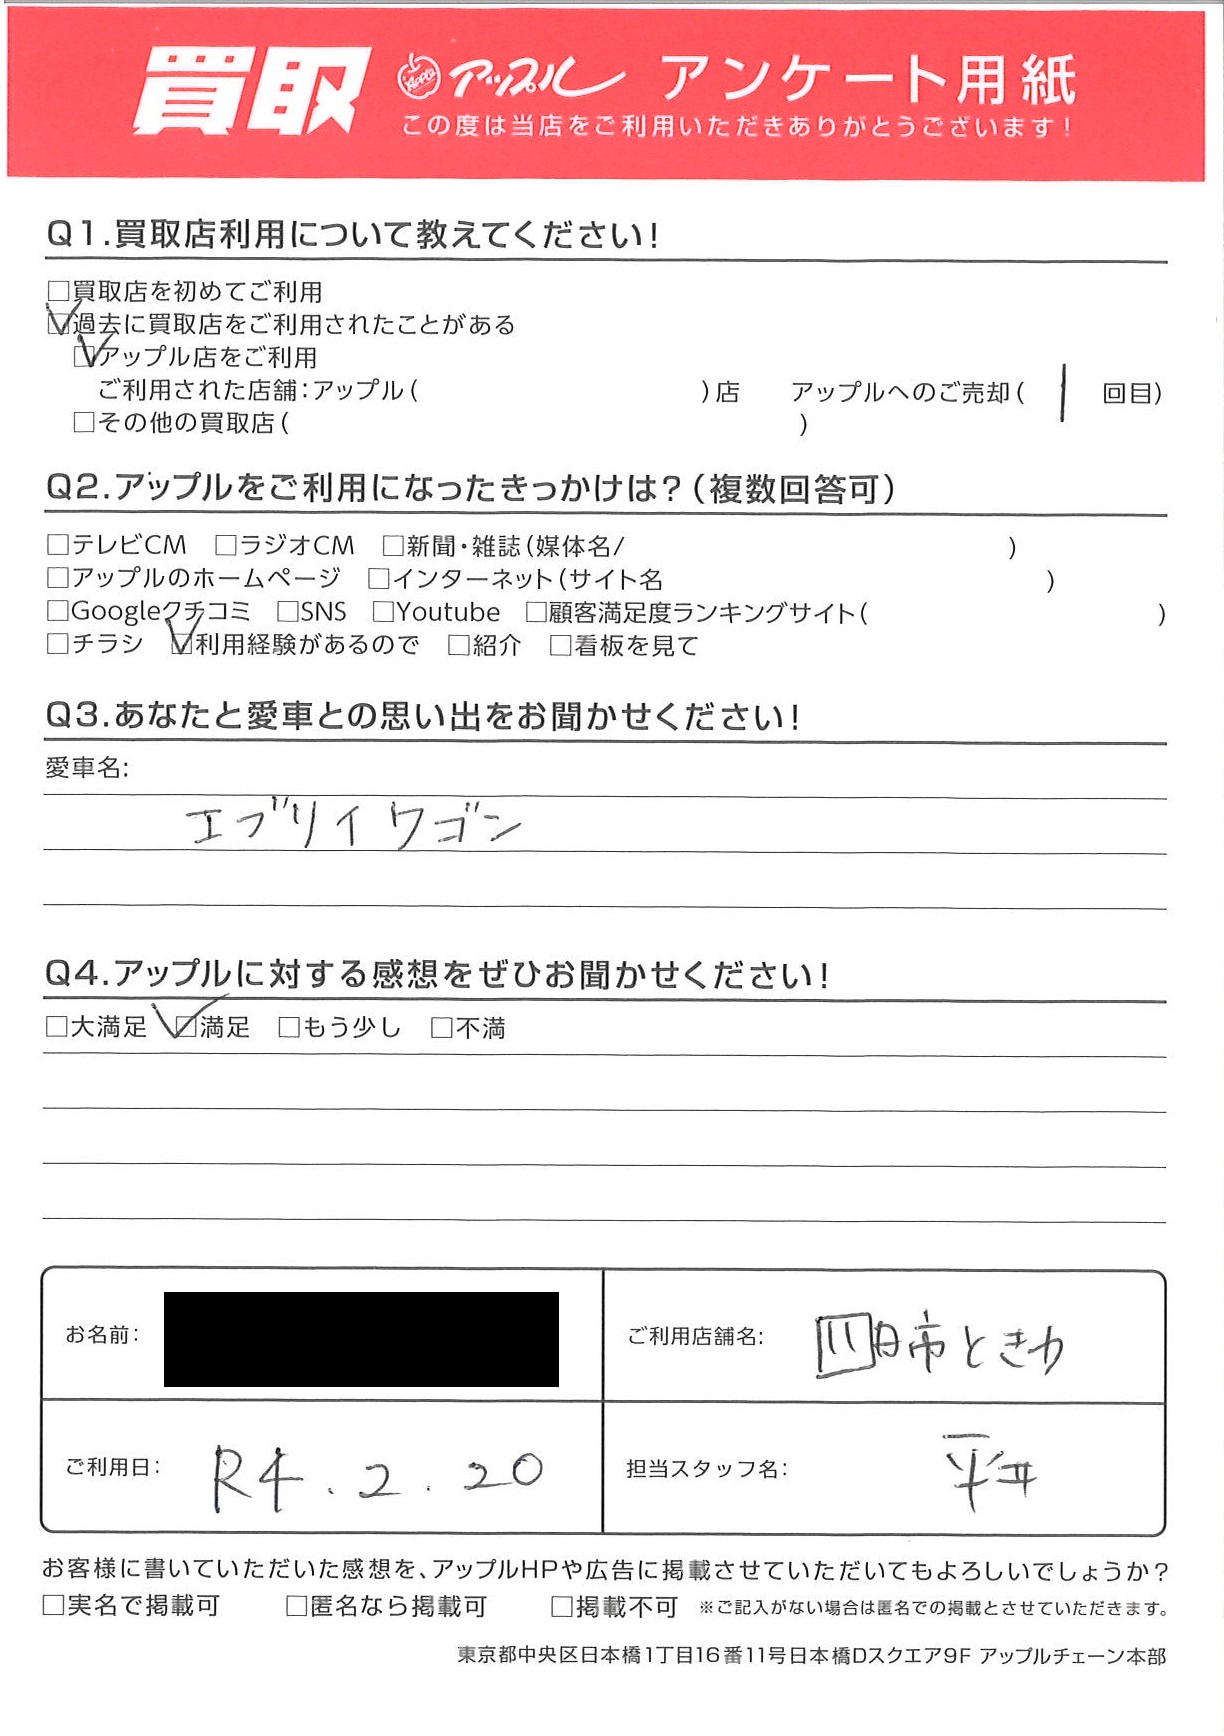 買取 APPLE アップル アンケート用紙
この度は当店をご利用いただきありがとうございます!
Q1.買取店利用について教えてください!
□買取店を初めてご利用
☑過去に買取店をご利用されたことがある
☑アップル店をご利用
ご利用された店舗:アップル( )店 アップルへのご売却( 1 回目)
□その他の買取店( )
Q2.アップルをご利用になったきっかけは?(複数回答可)
□テレビCM □ラジオCM □新聞・雑誌(媒体名/ )
□アップルのホームページ □インターネット(サイト名 )
□Googleクチコミ □SNS □Youtube □顧客満足度ランキングサイト( )
□チラシ ☑利用経験があるので □紹介 □看板を見て
Q3.あなたと愛車との思い出をお聞かせください!
愛車名:
エブリイワゴン
Q4.アップルに対する感想をぜひお聞かせください!
□大満足 ☑満足 □もう少し □不満
お名前: ご利用店舗名: 四日市ときわ
ご利用日: R4.2.20 担当スタッフ名: 平井
お客様に書いていただいた感想を、アップルHPや広告に掲載させていただいてもよろしいでしょうか?
□実名で掲載可 □匿名なら掲載可 □掲載不可 ※ご記入がない場合は匿名での掲載とさせていただきます。
東京都中央区日本橋1丁目16番11号日本橋Dスクエア9F アップルチェーン本部